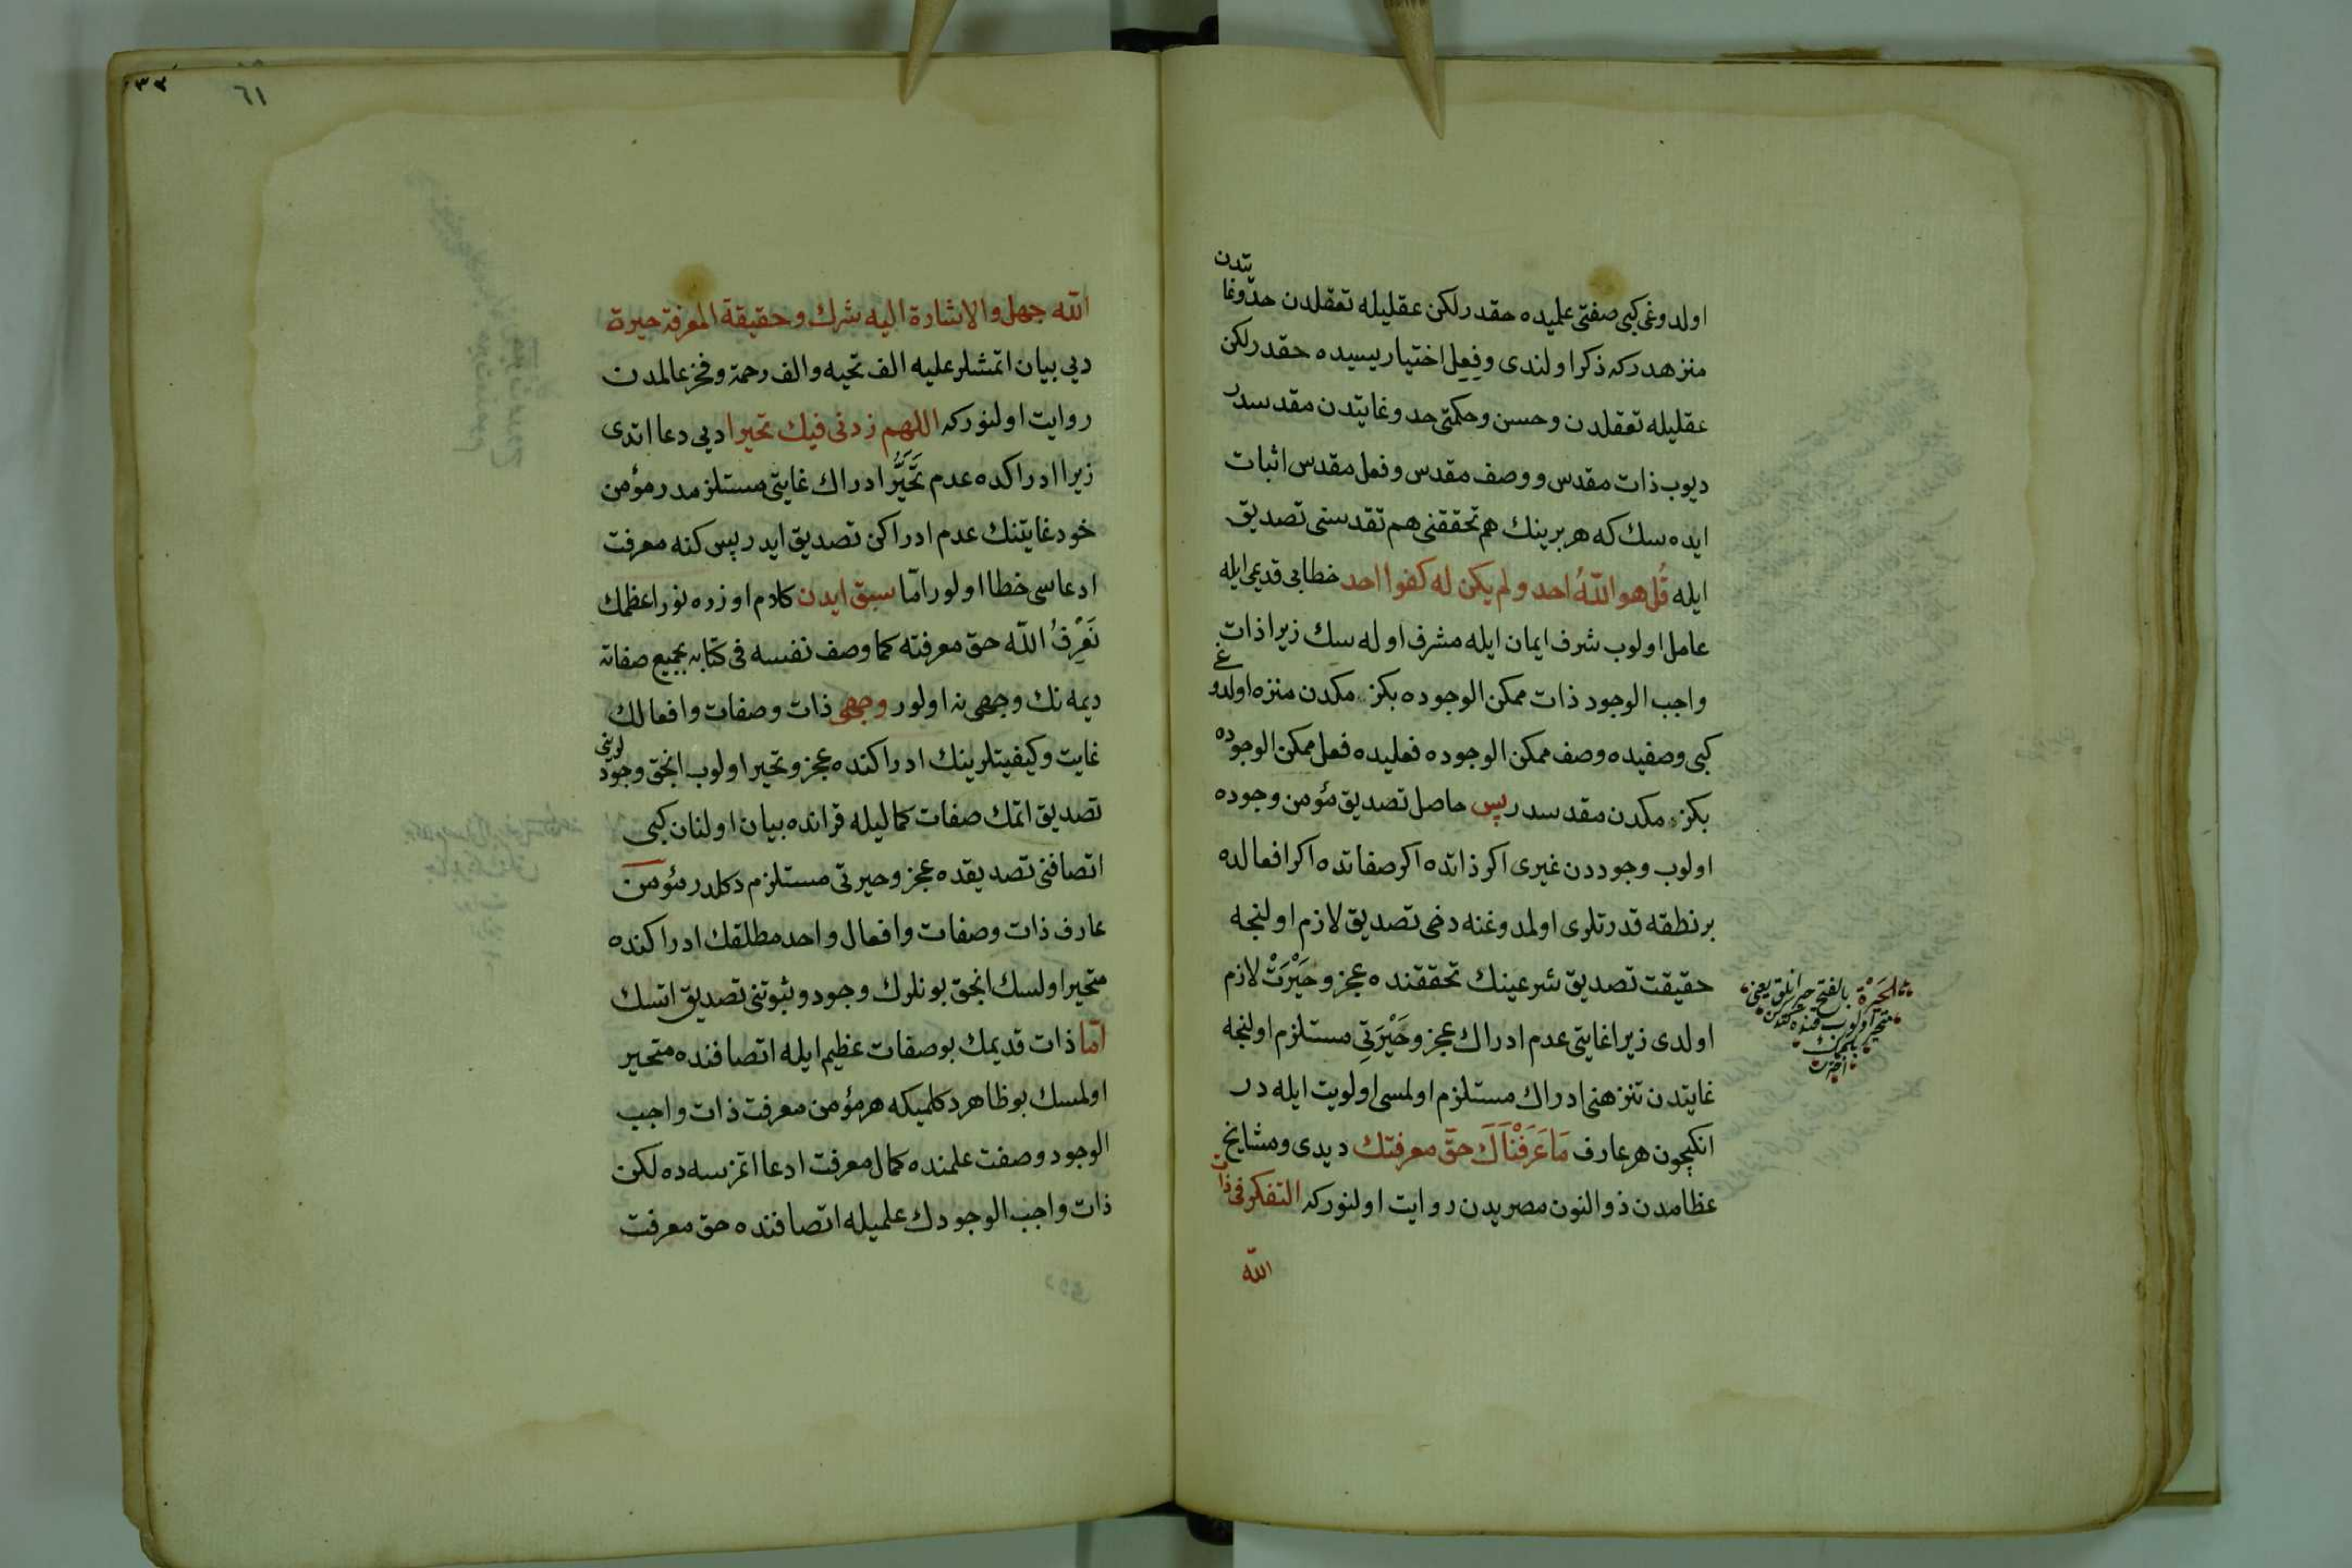 اولدوغی كبی صفتی علمیده حقدر لكن عقلیله تعقلدن حدّ وغایتدن
منزهدر كه ذكر اولندی وفعل اختیاریسیده حقدر لكن
عقلیله تعقلدن وحسن وحكمتی حد وغایتدن مقدسدر
دیوب ذات مقدس ووصف مقدس وفعل مقدس اثبات
ایده سك كه هر برینك هم تحققنی هم تقدسنی تصدیق
ایله قُل هو اللّٰهُ احد ولم یكن له كفوا احد خطابی قدیمی ایله
عامل اولوب شرف ایمان ایله مشرف اوله سك زیرا ذات
واجب الوجود ذات ممكن الوجوده بكزمكدن منزه اولدوغی
كبی وصفیده وصف ممكن الوجوده فعلیده فعل ممكن الوجوده
بكزمكدن مقدسدر پس حاصل تصدیق مؤمن وجوده
اولوب وجوددن غیری اكر ذاتده اكر صفاتده اكر افعالده
بر نطقه قدرتلری اولمدوغنه دخی تصدیق لازم اولنجه
حقیقت تصدیق شرعینك تحققنده عجز وحَیْرَتْ لازم
اولدی زیرا غایتی عدم ادراك عجز وحَیْرَتِی مستلزم اولنجه
غایتدن تنزهنی ادراك مستلزم اولمسی اولویت ایله در
انكیچون هر عارف مَا عَرَفْنَاكَ حقّ معرفتك دیدی ومشایخ
عظامدن ذوالنون مصریدن روایت اولنور كه التفكر فی ذات
اللّٰه
الحَیْرَة بالفتح
متحیر اولوب
اللّٰه جهل والاشارة الیه شرك وحقیقة المعرفة حیرة
دیی بیان اتمشلر علیه الف تحیه والف رحمة وفخر عالمدن
روایت اولنور كه اللهم زدنی فیك تحیرا دیی دعا اتدی
زیرا ادراكده عدم تَحَیُّر ادراك غایتی مستلزمدر مؤمن
خود غایتنك عدم ادراكن تصدیق ایدر پس كنه معرفت
ادعاسی خطا اولور امّا سبق ایدن كلام اوزره نور اعظمك
نَعْرِفُ اللّٰه حق معرفته كما وصف نفسه فی كتابه بجمیع صفاته
دیمه نك وجهی نه اولور وجهی ذات وصفات وافعالك
غایت وكیفیتلرینك ادراكنده عجز وتحیر اولوب انجق وجودلرینی
تصدیق اتمك صفات كمالیله قرانده بیان اولنان كبی
اتصافنی تصدیقده عجز وحیرتی مستلزم دكلدر مؤمن
عارف ذات وصفات وافعال واحد مطلقك ادراكنده
متحیر اولسك انجق بونلرك وجود وثبوتنی تصدیق اتسك
امّا ذات قدیمك بو صفات عظیم ایله اتصافنده متحیر
اولمسك بو ظاهر دكلمیكه هر مؤمن معرفت ذات واجب
الوجود وصفت علمنده كمال معرفت ادعا اتمزسه ده لكن
ذات واجب الوجودك علمیله اتصافنده حق معرفت
٦١